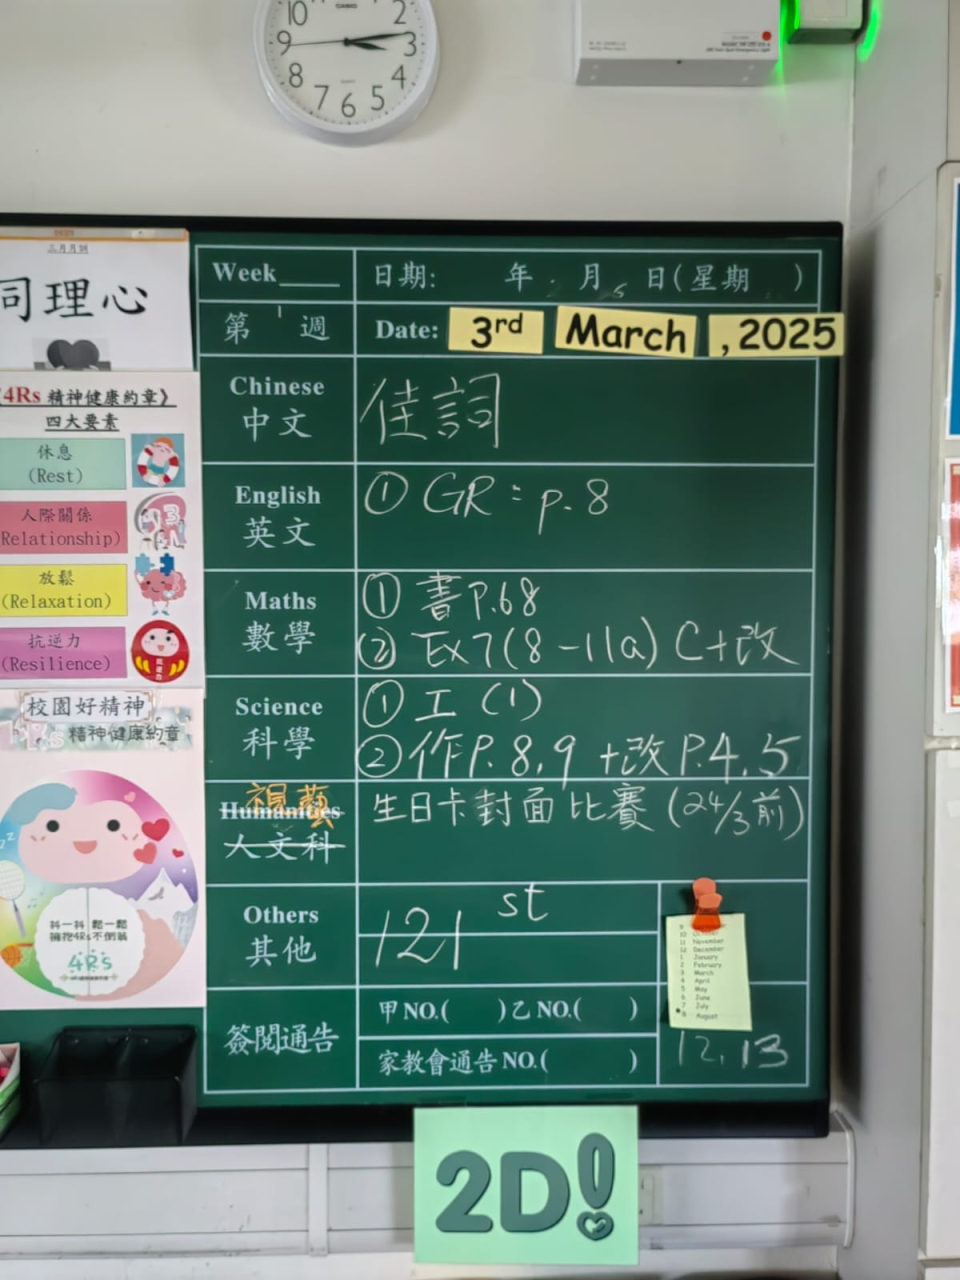 10
2
9
3
8
4
7
6
5
CASIO
三月月訓
同理心
《4Rs 精神健康約章》
四大要素
休息
(Rest)
人際關係
(Relationship)
放鬆
(Relaxation)
抗逆力
(Resilience)
抗逆力
校園好精神
4Rs 精神健康約章
抖一抖 鬆一鬆
擁抱4Rs不倒翁
4Rs
Week
日期: 年 月 日(星期 )
第 週
Date: 3rd March , 2025
Chinese
中文
佳詞
English
英文
① GR: p.8
Maths
數學
① 書P.68
② Ex7(8-11a) C+改
Science
科學
① 工 (1)
② 作P.8,9 +改P.4,5
視藝
Humanities
人文科
生日卡封面比賽 (24/3前)
Others
其他
121st
9
10
11 November
12 December
1 January
2 February
3 March
4 April
5 May
6 June
7 July
8 August
簽閱通告
甲NO.( )乙NO.( )
家教會通告NO.( )
12, 13
2D!